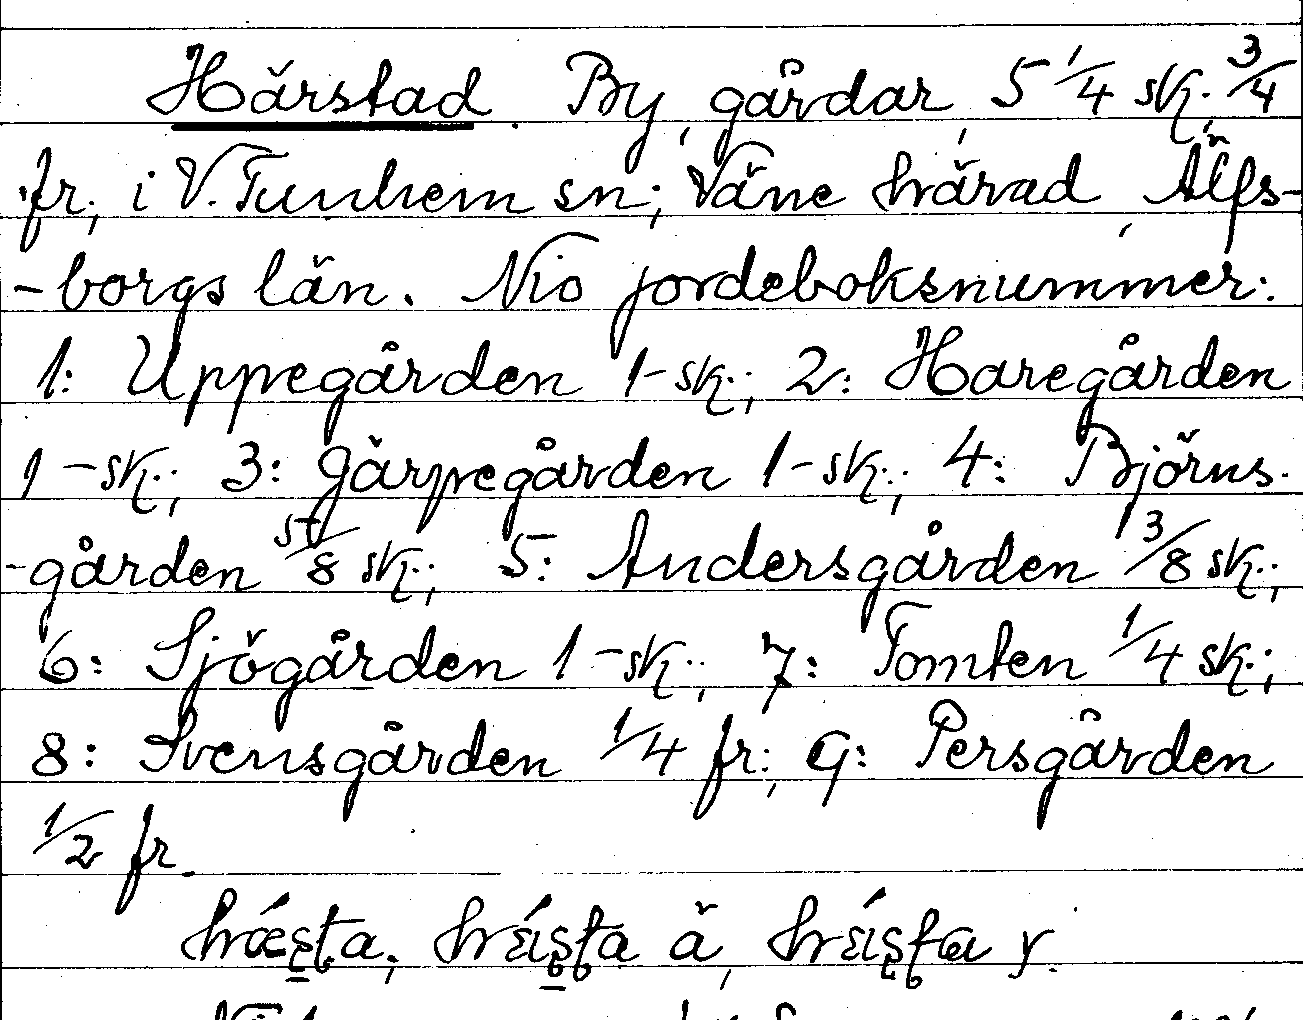 Härstad. By, gårdar, 5 1/4 sk., 3/4
fr., i V. Tunhem sn; Väne härad, Älfs-
-borgs län. Nio jordeboksnummer:
1: Uppegården 1-sk.; 2: Haregården
1-sk.; 3: Gärpegården 1-sk.; 4: Björns-
-gården 5/8 sk.; 5: Andersgården 3/8 sk.;
6: Sjögården 1-sk.; 7: Tomten 1/4 sk.;
8: Svensgården 1/4 fr.; 9: Persgården
1/2 fr.